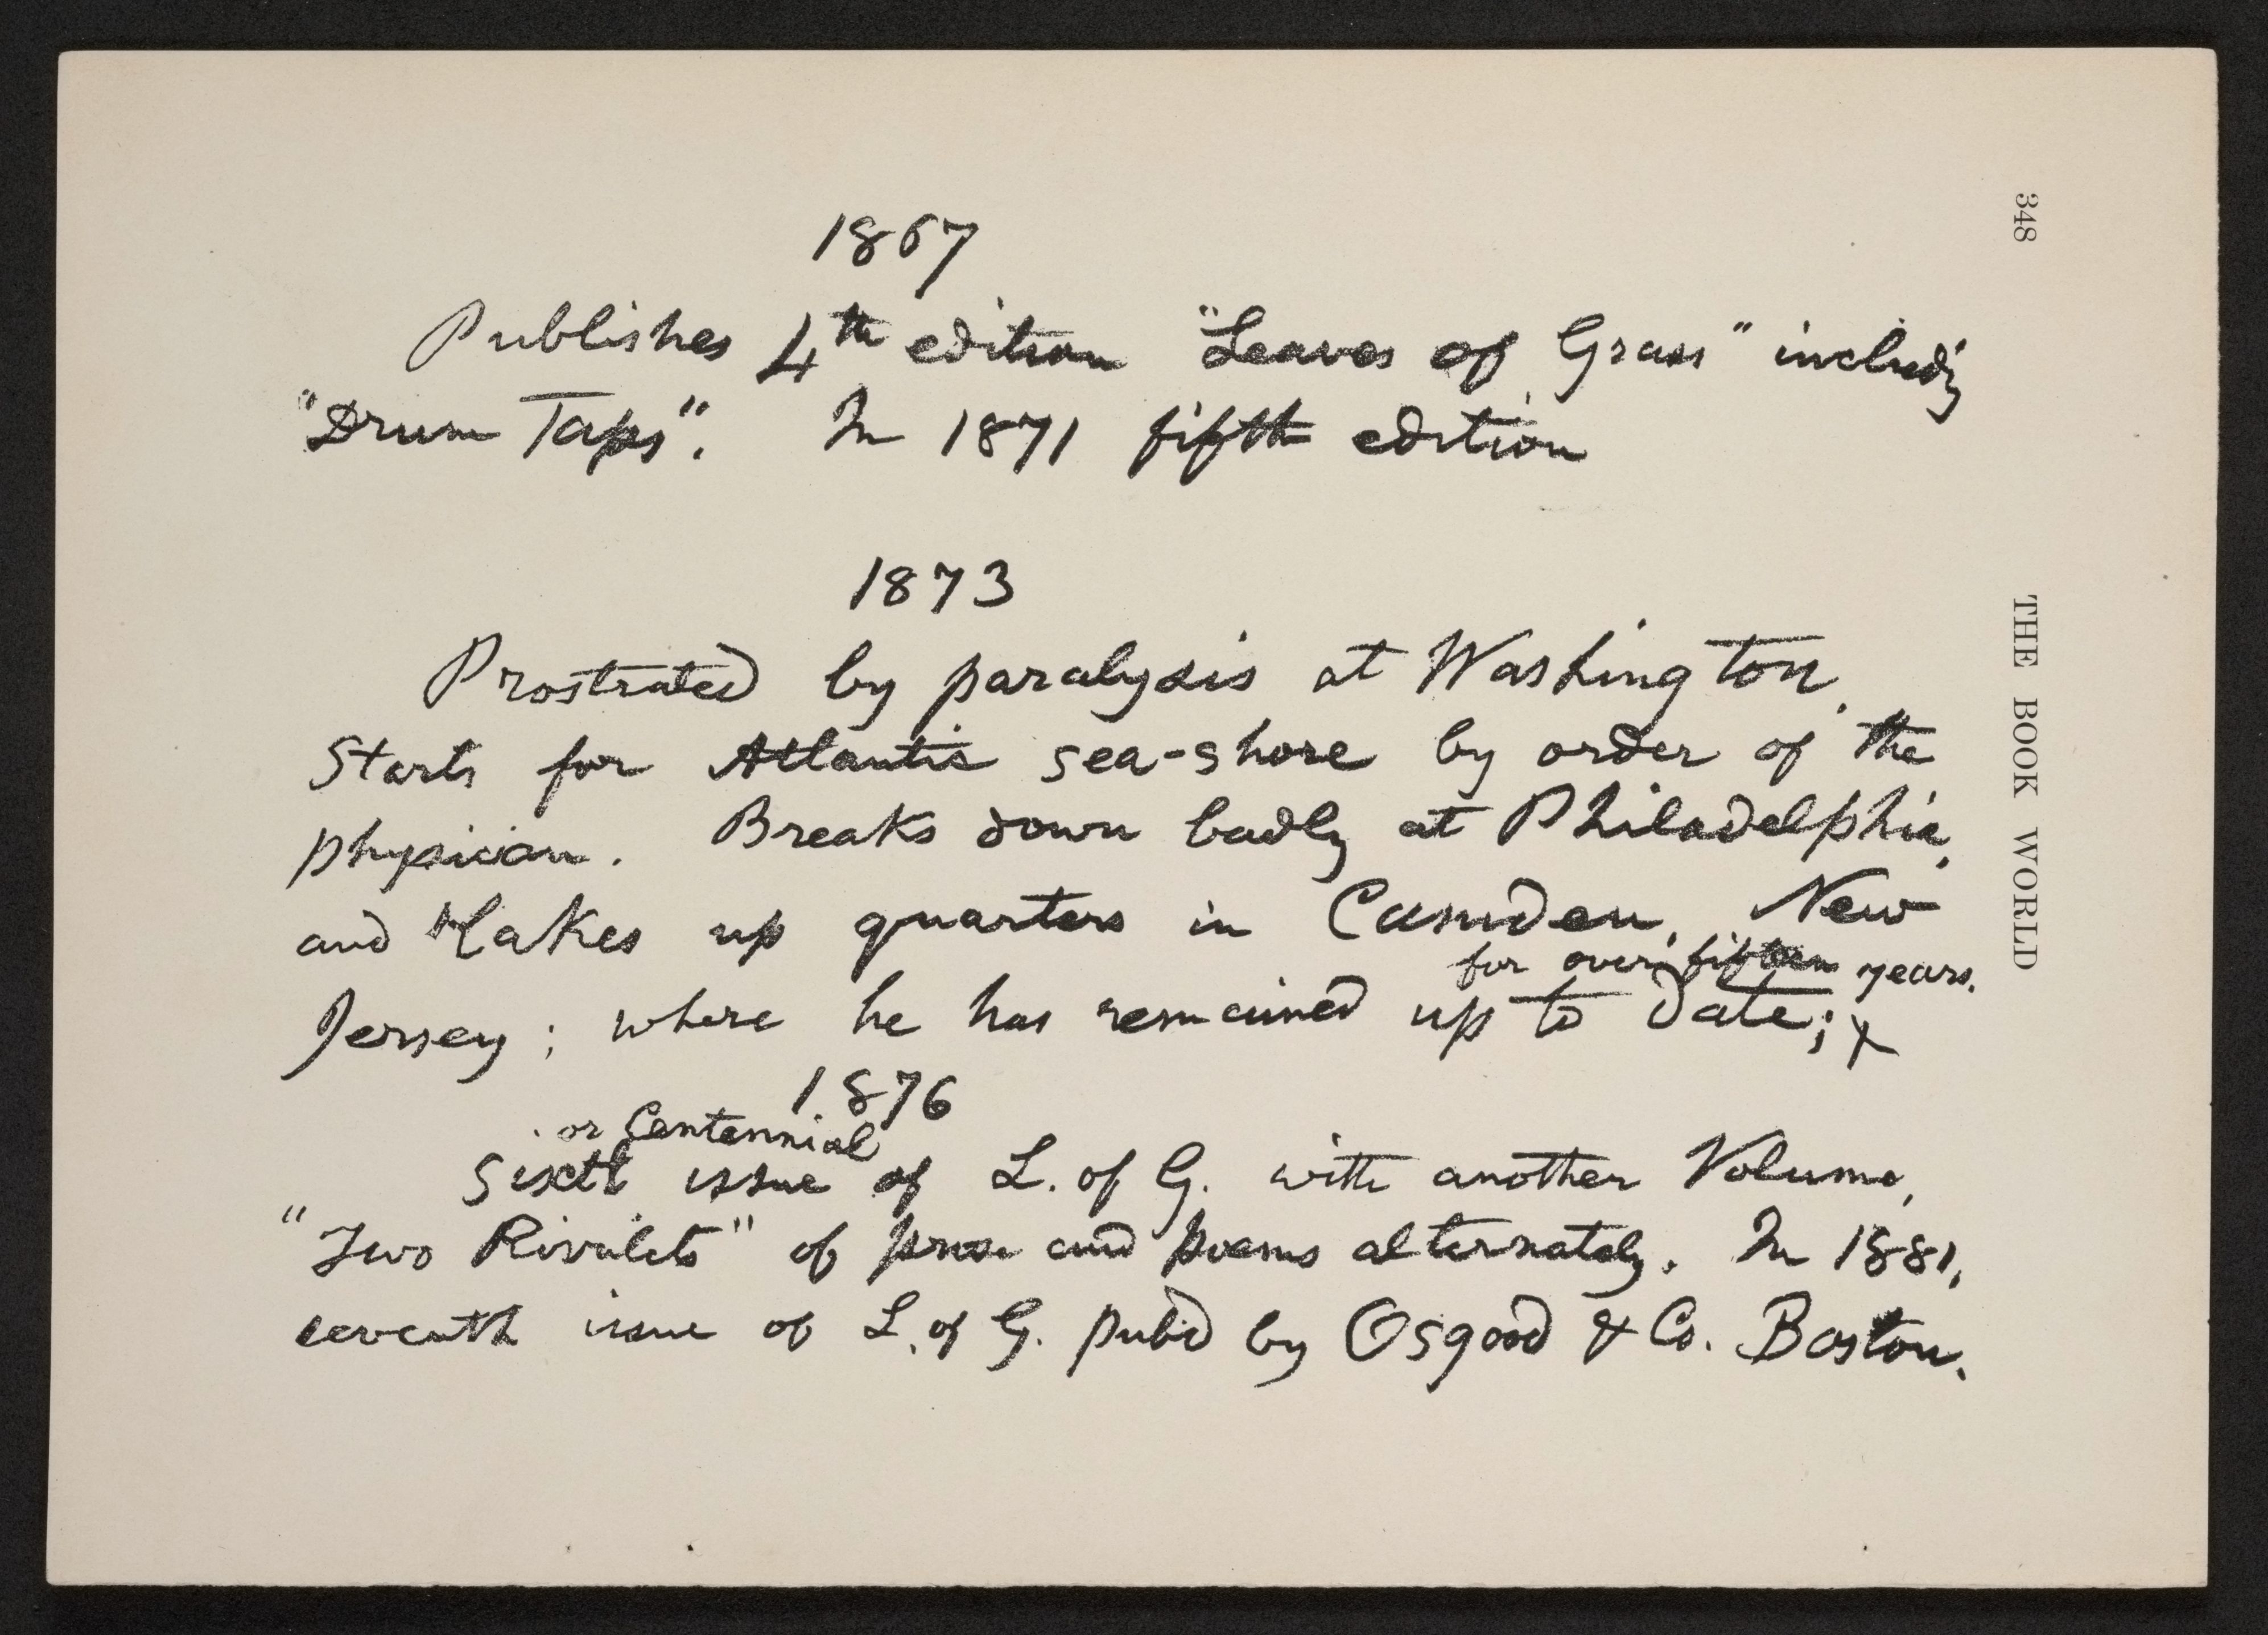 348
THE BOOK WORLD
1867
Publishes 4th edition "Leaves of Grass" includ'g
"Drum Taps". In 1871 fifth edition
1873
Prostrated by paralysis at Washington.
Starts for Atlantic sea-shore by order of the
physician. Breaks down badly at Philadelphia,
and takes up quarters in Camden, New
for over fifteen years.
Jersey; where he has remained up to date;
1876
or Centennial
Sixth issue of L. of G. with another Volume,
"Two Rivulets" of prose and poems alternately. In 1881,
seventh issue of L. of G. pub'd by Osgood & Co. Boston.